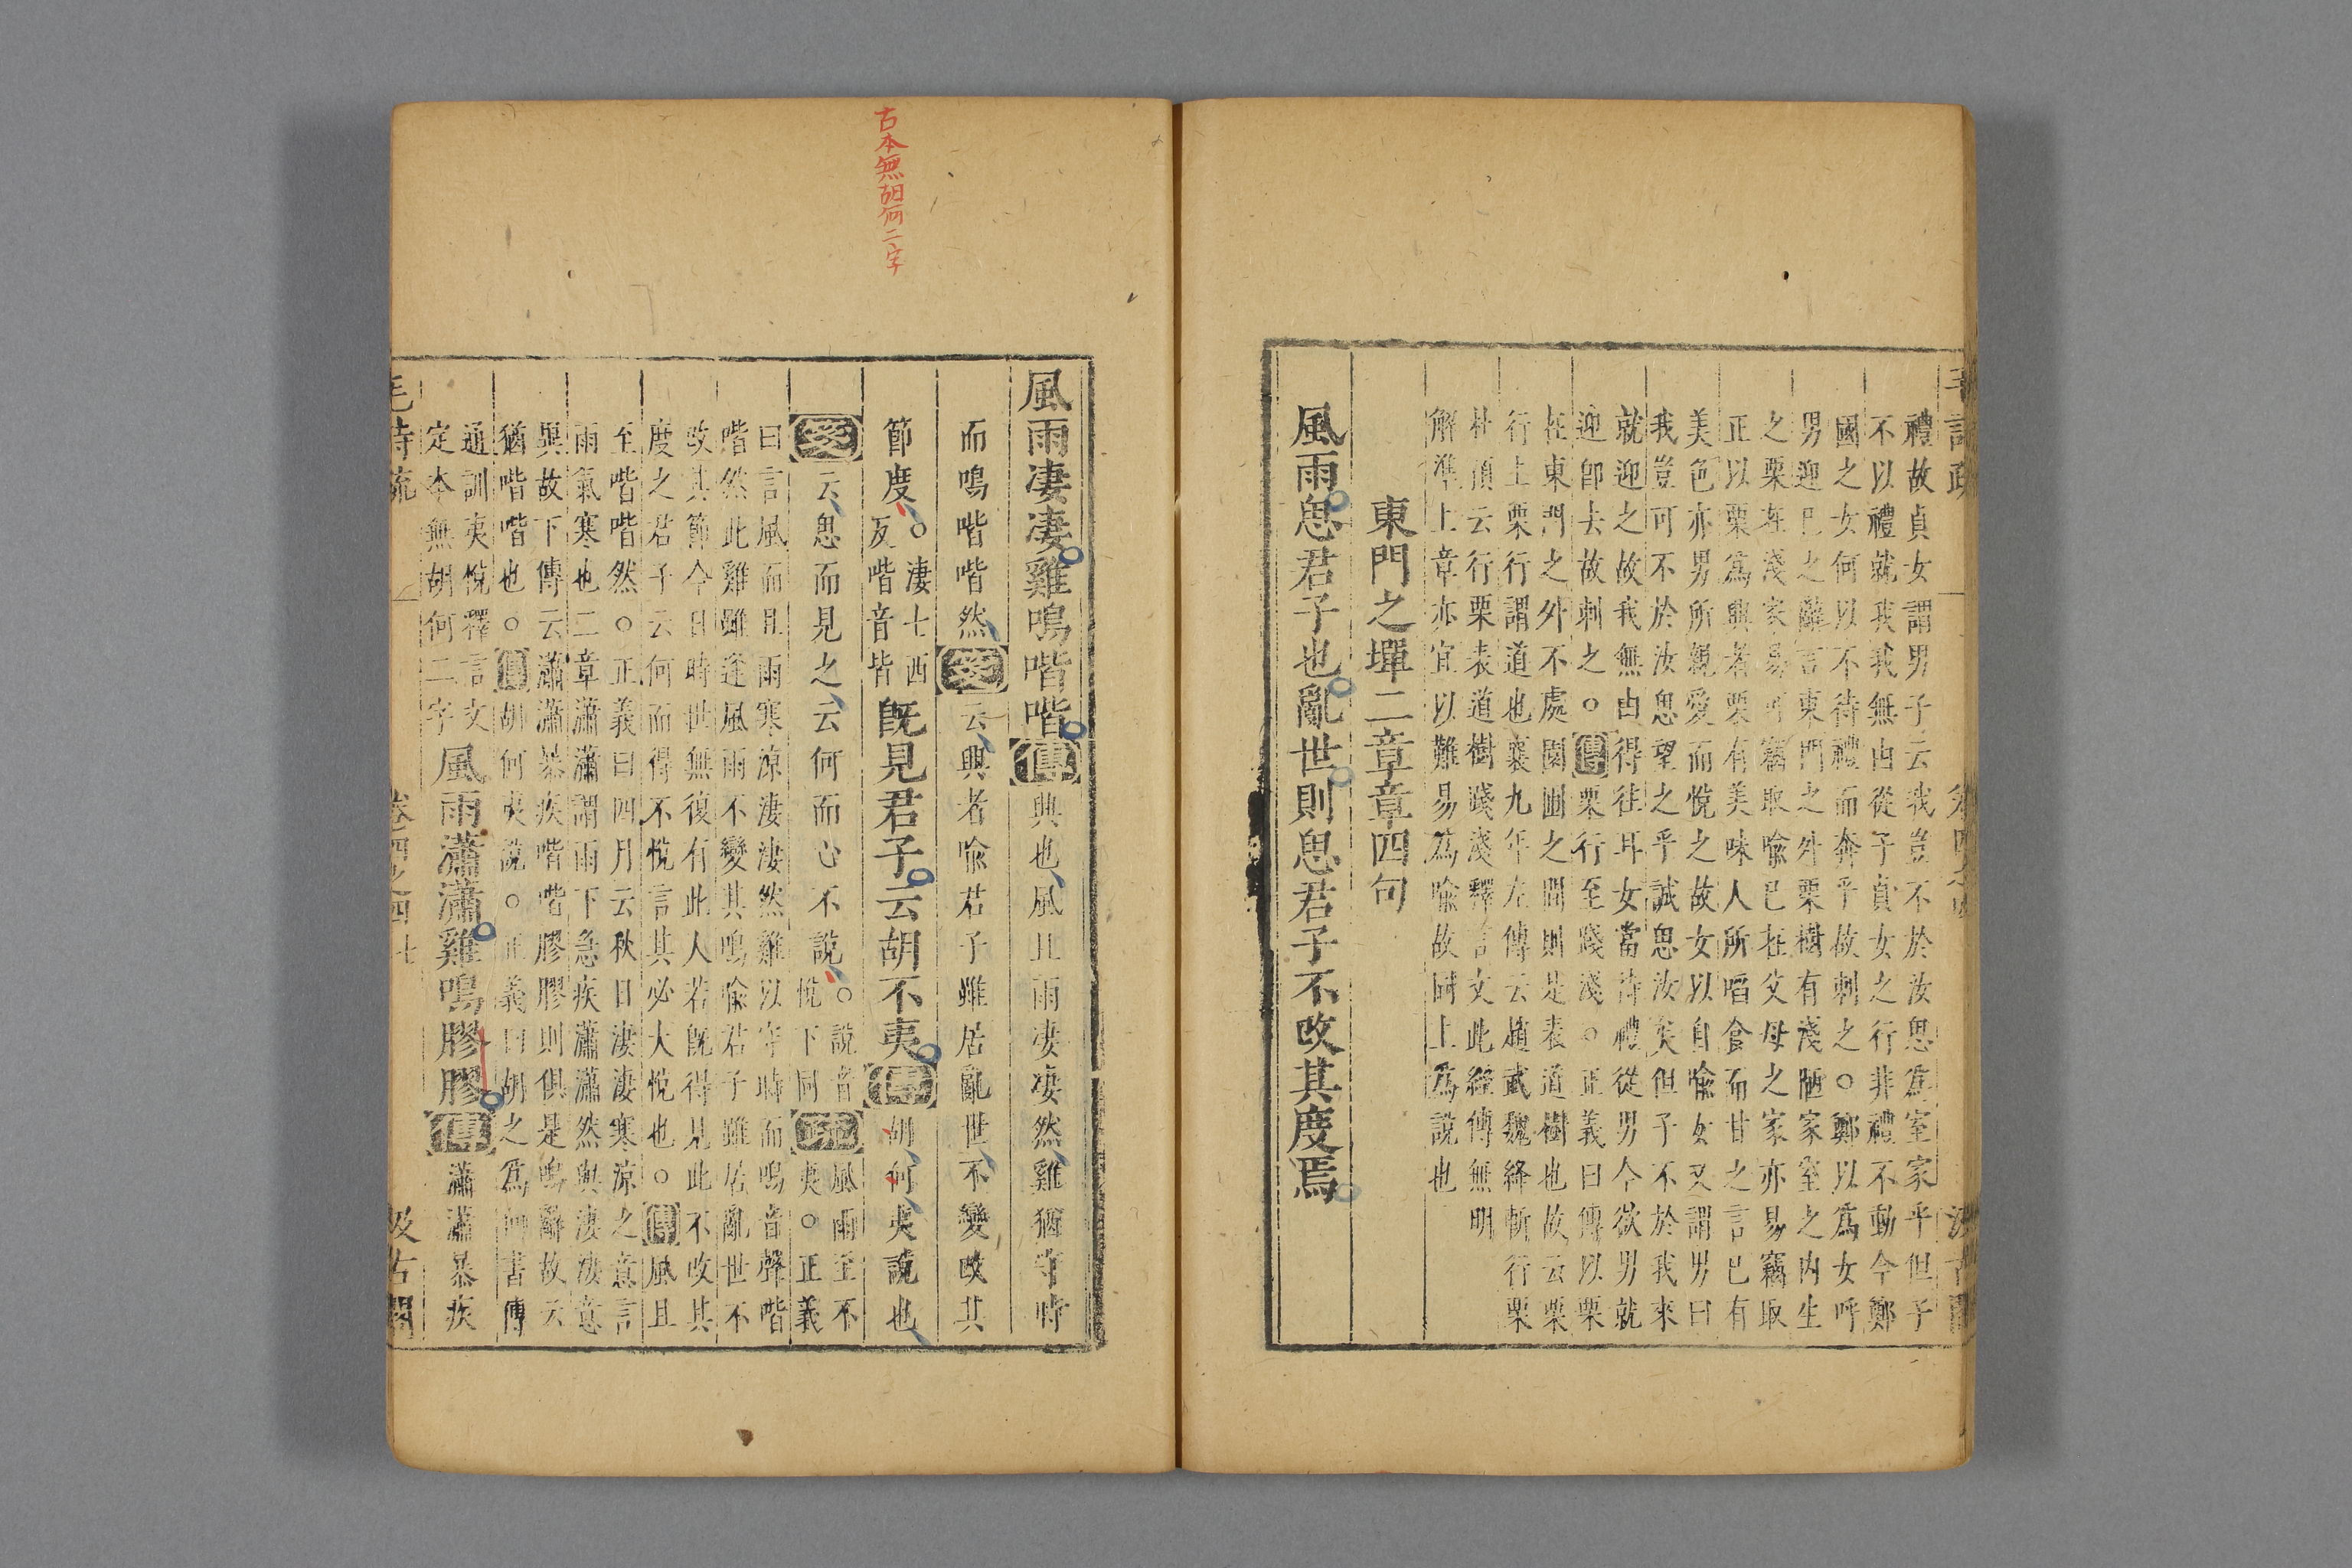 禮故貞女謂男子云我豈不於汝思爲室家乎但子
不以禮就我我無由從子貞女之行非禮不動今鄭
國之女何以不待禮而奔乎故刺之○鄭以爲女呼
男迎巳之辭言東門之外栗樹有淺陋家室之内生
之栗在淺家易可竊取喻巳在父母之家亦易竊取
正以栗爲興者栗有美味人所㗖食而甘之言巳有
美色亦男所親愛而悅之故女以自喻女又謂男曰
我豈可不於汝思望之乎誠思汝矣但子不於我來
就迎之故我無由得往耳女當待禮從男今欲男就
迎卽去故刺之○傳栗行至踐淺○正義曰傳以栗
在東門之外不處園圃之間則是表道樹也故云栗
行上栗行謂道也襄九年左傳云趙武魏絳斬行栗
杜預云行栗表道樹踐淺釋言文此經傳無明
解準上章亦宜以難易爲喻故同上爲說也
東門之墠二章章四句
風雨思君子也亂世則思君子不改其度焉
風雨凄凄雞鳴喈喈傳興也風且雨凄凄然雞猶守時
而鳴喈喈然箋云興者喻君子雖居亂世不變改其
節度○淒七西反喈音皆旣見君子云胡不夷傳胡何夷說也
箋云思而見之云何而心不說○說音悅下同疏風雨至不夷○正義
曰言風而且雨寒凉淒淒然雞以守時而鳴音聲喈
喈然此雞雖逢風雨不變其鳴喻君子雖居亂世不
改其節今日時世無復有此人若旣得見此不改其
度之君子云何而得不悅言其必大悅也○傳風且
至喈喈然○正義曰四月云秋日淒淒寒凉之意言
雨氣寒也二章瀟瀟謂雨下急疾瀟瀟然與淒淒意
異故下傳云瀟瀟暴疾喈喈膠膠則俱是鳴辭故云
猶喈喈也○傳胡何夷說○正義曰胡之爲何書傳
通訓夷悅釋言文
定本無胡何二字風雨瀟瀟雞鳴膠膠傳瀟瀟暴疾
毛詩疏 卷四之四 七 汲古閣
古本無胡何二字